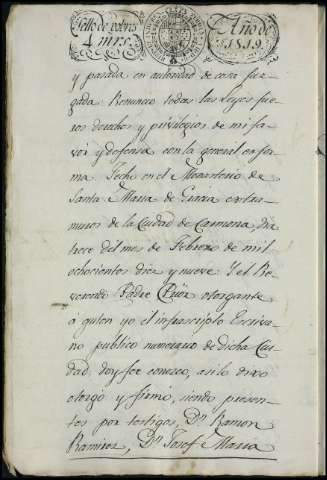 Sello de pobres
4 mrs.
Año de
1819.
y pasada en autoridad de cosa juz-
gada. Renuncio todas las Leyes fue-
ros derechos y privilegios de mi fa-
vor y defensa con la general en for-
ma. Fecho en el Monasterio de
Santa Maria de Gracia extra-
muros de la Ciudad de Carmona dia
trece del mes de Febrero de mil
ochocientos diez y nueve. Y el Re-
verendo Padre Prior otorgante
a quien yo el infrascripto Escriva-
no publico numerario de dicha Ciu-
dad, doy fee conozco, asi lo dixo
otorgó y firmó, siendo presen-
tes por testigos, Dn. Ramon
Ramirez, Dn. Josef Maria